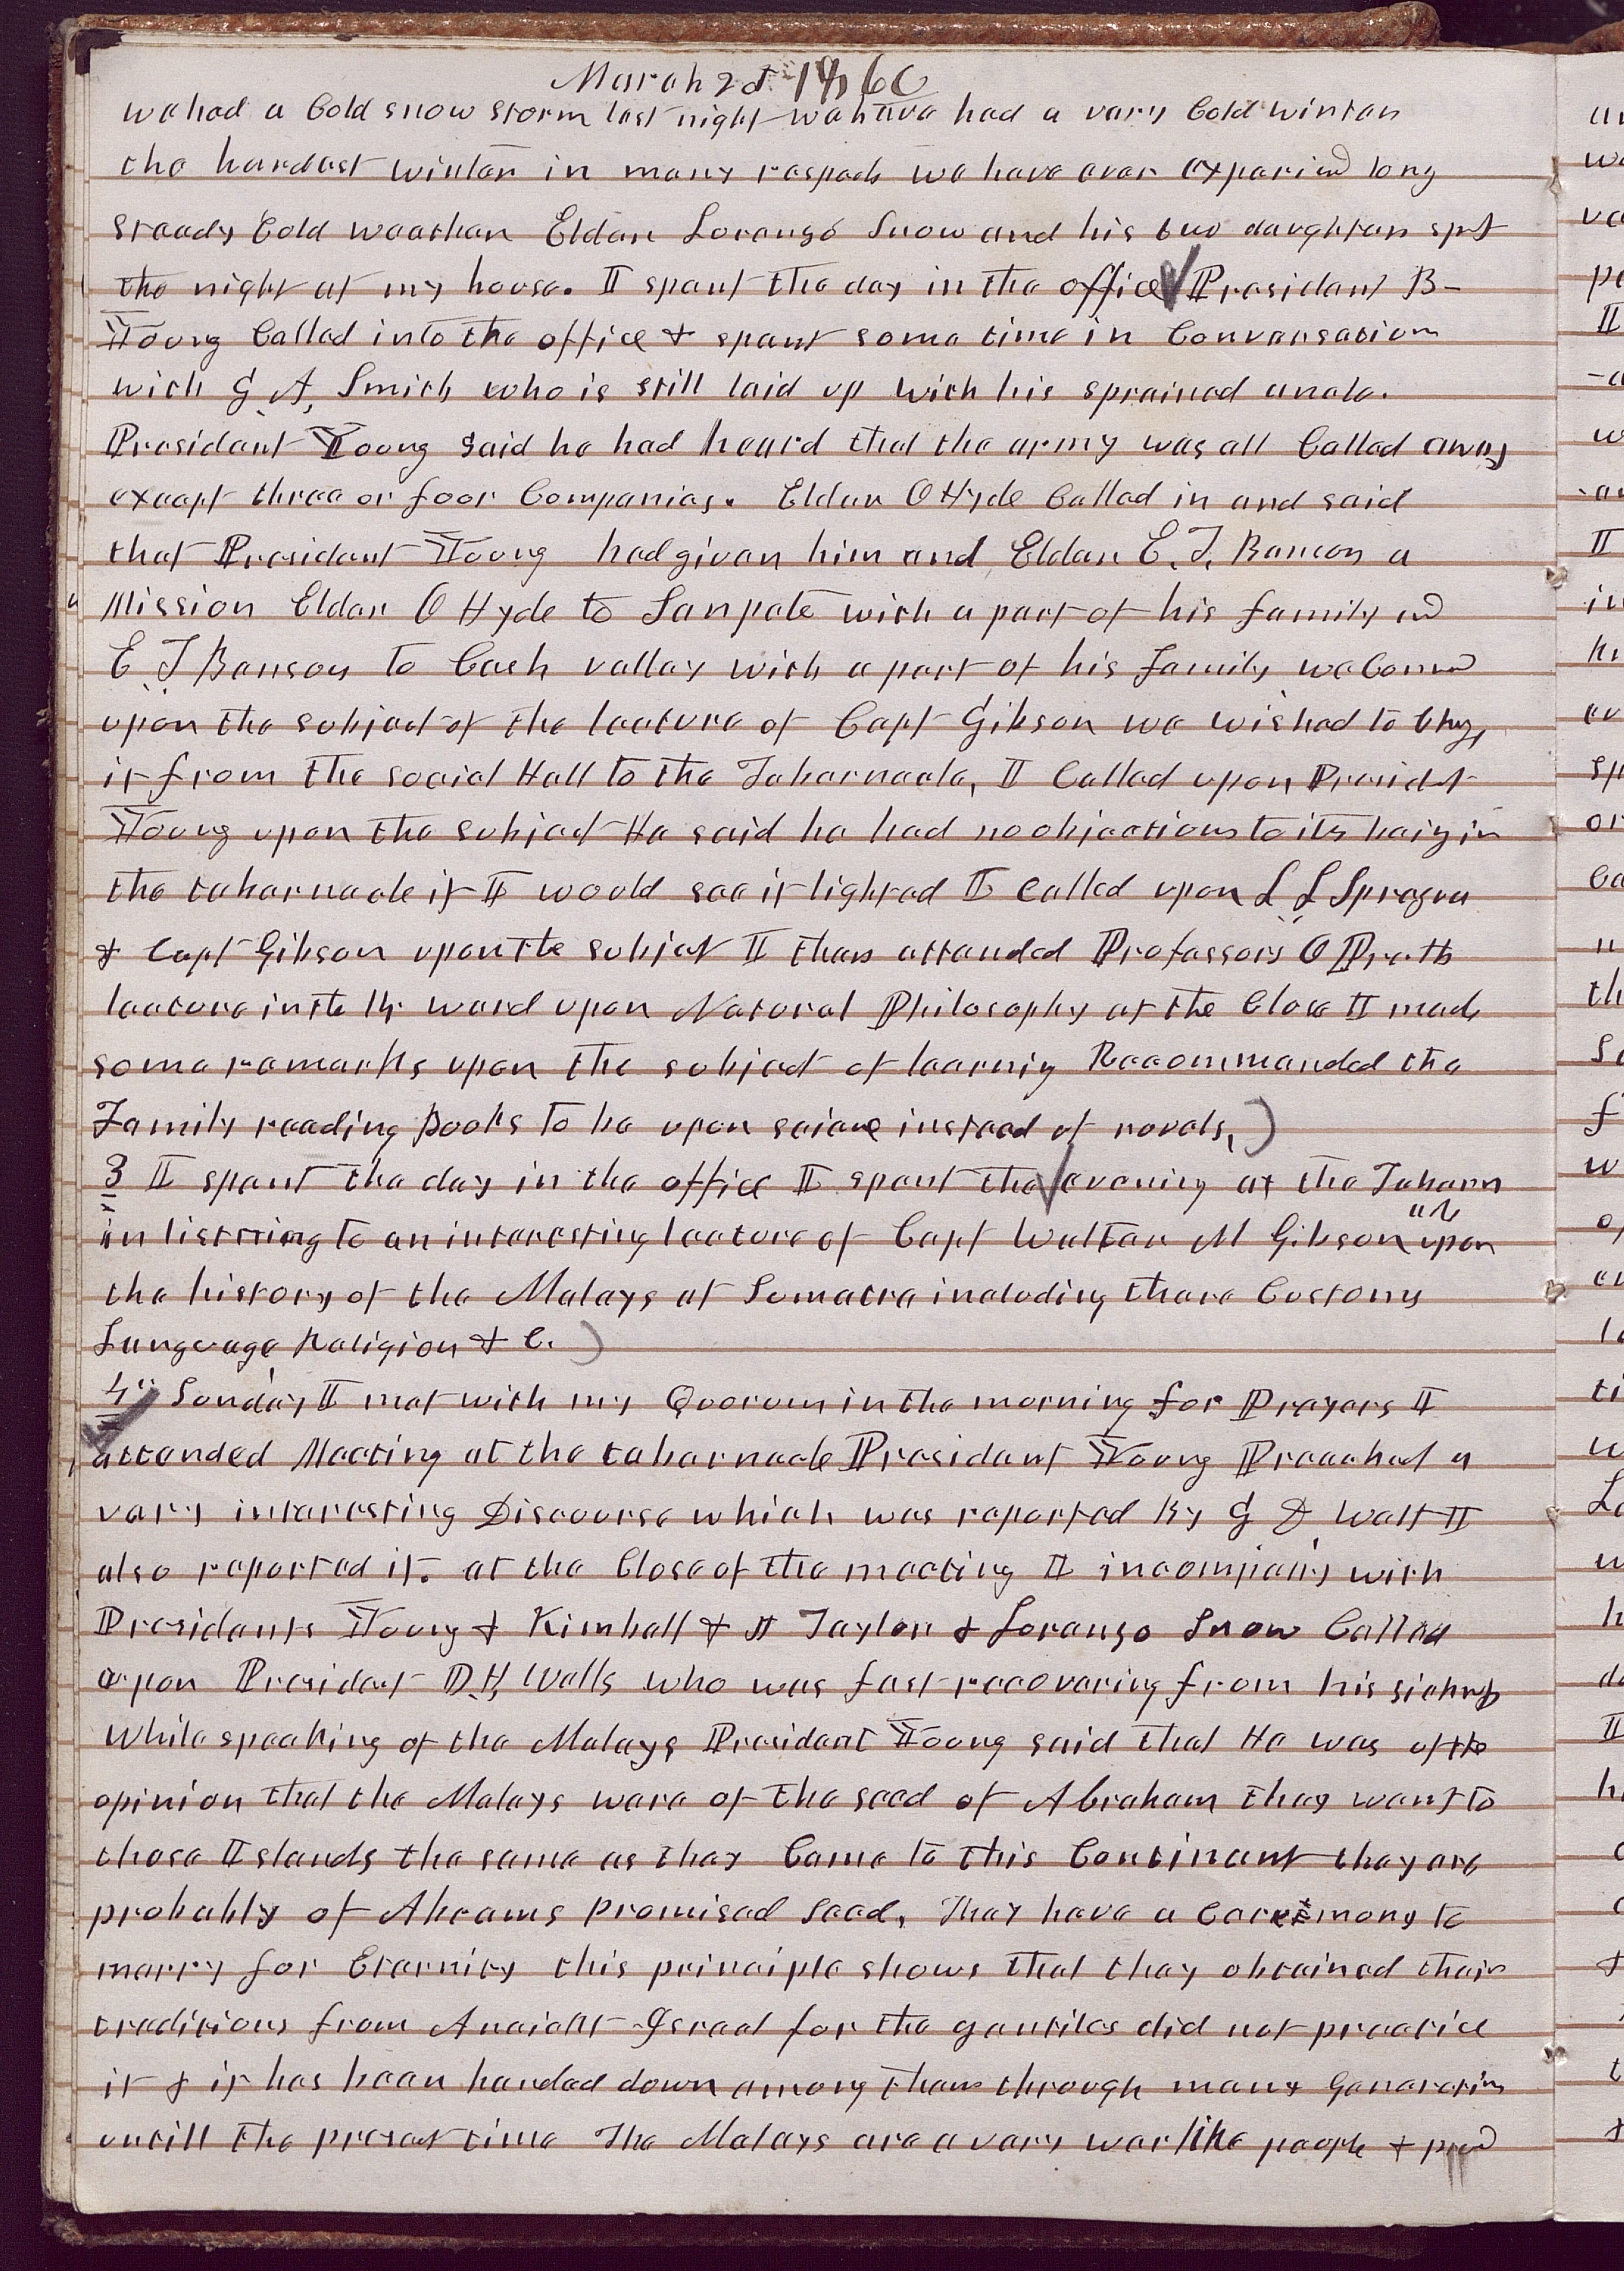 March 2d 1860
we had a Cold snow storm last night we have had a very Cold winter
the hardest winter in many respects we have ever experied long
steady Cold weather Elder Lorenzo Snow and his two daughters spt
the night at my house. I spent the day in the office President B-
Young Called into the office & spent some time in Conversation
with G. A. Smith who is still laid up with his sprained ancle.
President Young said he had heard that the army was all Called away
except three or four Companies. Elder O Hyde Called in and said
that President Young had given him and Elder E. T. Benson a
Mission Elder O Hyde to Sanpete with a part of his family and
E T Benson to Cash valley with a part of his family we Conved
upon the subject of the lecture of Capt Gibson we wished to Chg,
it from the social Hall to the Tabernacle, I Called upon Presidet
Young upon the subject He said he had no objections to its beig in
the tabernacle if I would see it lighted I Called upon L L Sprague
& Capt Gibson upon the subject I then attended Professors O Pratts
lecture in the 14 ward upon Natural Philosophy at the Close I made
some remarks upon the subject of learnig Recommended the
Family reading Books to be upon sciance instead of novels,)
3 I spent the day in the office I spent the evening at the Tabern
acle
in listning to an interesting lecture of Capt Walter M Gibson upon
the history of the Malays at Sumatra including there Customs
Language Religion & C.)
4" Sunday I met with my Quorum in the morning for Prayers I
attended Meeting at the tabernacle President Young Preached a
very interesting Discourse which was reported By G D Watt I
also reported it. at the Close of the meeting I in company with
Presidents Young & Kimball & J Taylor & Lorenzo Snow Called
upon President D. H. Wells who was fast recovering from his sickness
While speaking of the Malays President Young said that He was of the
opinion that the Malays ware of the seed of Abraham they went to
those Islands the same as they Came to this Continant they are
probably of Abrams promised Seed, They have a Ceremony to
marry for Eternity this principle shows that they obtained their
traditions from Anciant Israel for the gentiles did not practice
it & it has been handed down among them through many Generations
untill the presat time The Malays are a very warlike people &